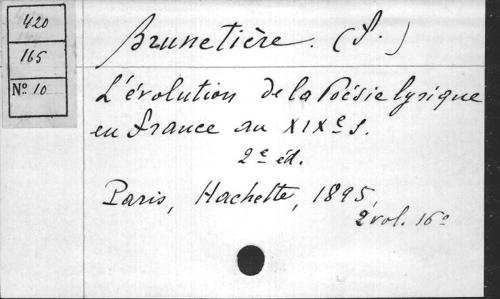 420
165
No. 10
Brunetière. (F.)
L'évolution de la Poésie lyrique
en France au XIXe s.
2e éd.
Paris, Hachette, 1895,
2 vol. 16o